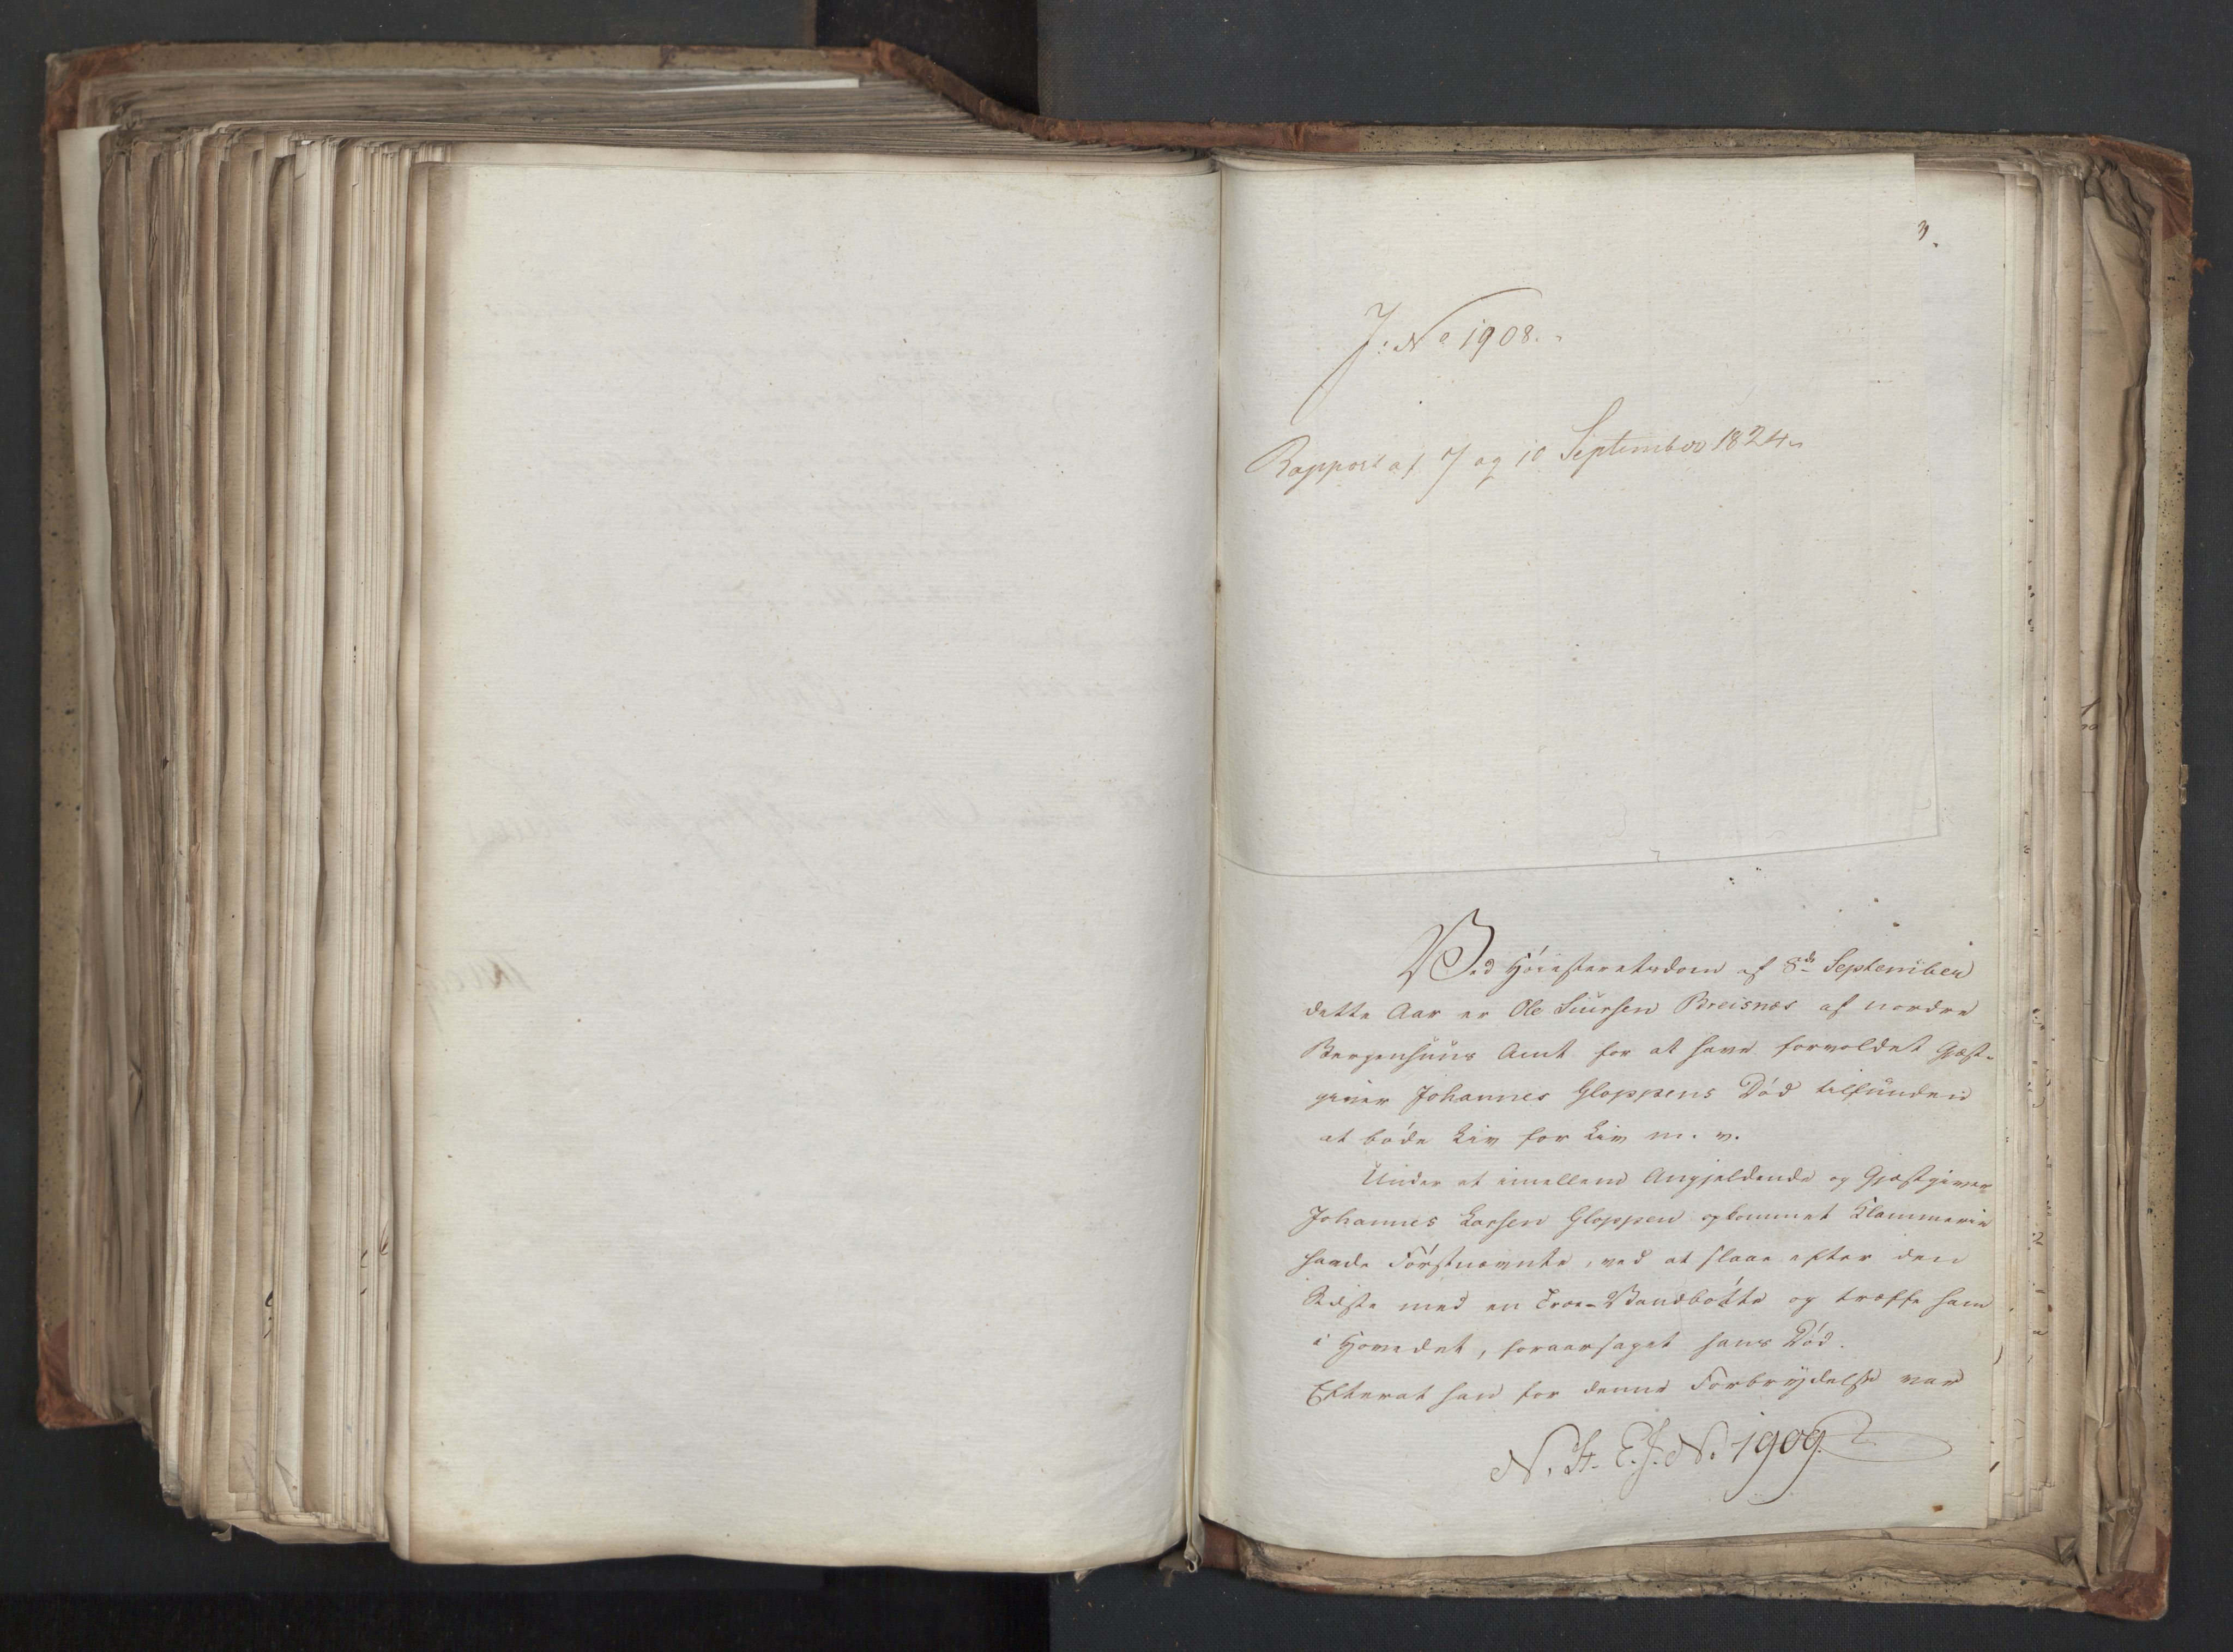 J: No 1908.
Rapport af 7 og 10 September 1824
Ved Høiesteretsdom af 8de September
dette Aar er Ole Siursen Breisnæs af nordre
Bergenhuus Amt for at have forvoldet Gæst-
giver Johannes Gloppens Død tilfunden
at bøde Liv for Liv m. v.
Under et imellem Angjeldende og Gjæstgiver
Johannes Larsen Gloppen opkommet Klammerie
havde Førstnævnte, ved at slaae efter den
Sidste med en Træe-Vandbøtte og træffe ham
i Hovedet, foraarsaget hans Død.
Efterat han for denne Forbrydelse var
N. H. E. J. No. 1909